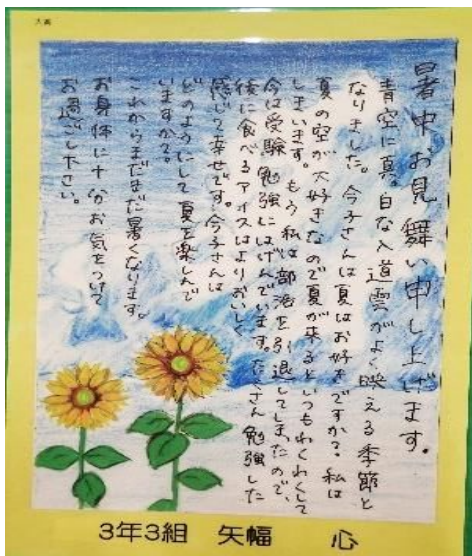 大賞
暑中お見舞い申し上げます。
青空に真っ白な入道雲がよく映える季節と
なりました。今子さんは夏はお好きですか？私は
夏の空が大好きなので夏が来るといつもわくわくして
しまいます。もう私は部活を引退してしまったので、
今は受験勉強にはげんでいます。たくさん勉強した
後に食べるアイスはよりおいしく
感じて幸せです。今子さんは
どのようにして夏を楽しんで
いますか？
これからまだまだ暑くなります。
お身体に十分お気をつけて
お過ごし下さい。
3年3組 矢幅 心